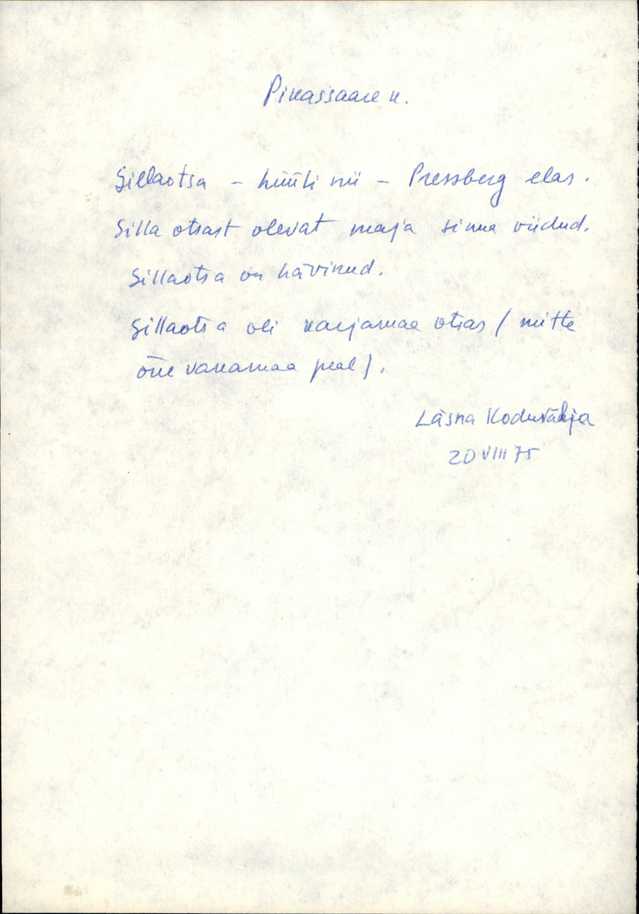 Pikassaare k.
Sillaotsa – hüüti nii – Pressberg elas.
Silla otsast olevat maja sinna viidud.
Sillaotsa on hävinud.
Sillaotsa oli karjamaa otsas (mitte
õue vanamaa peal).
Läsna Koduvälja
20 VIII 75